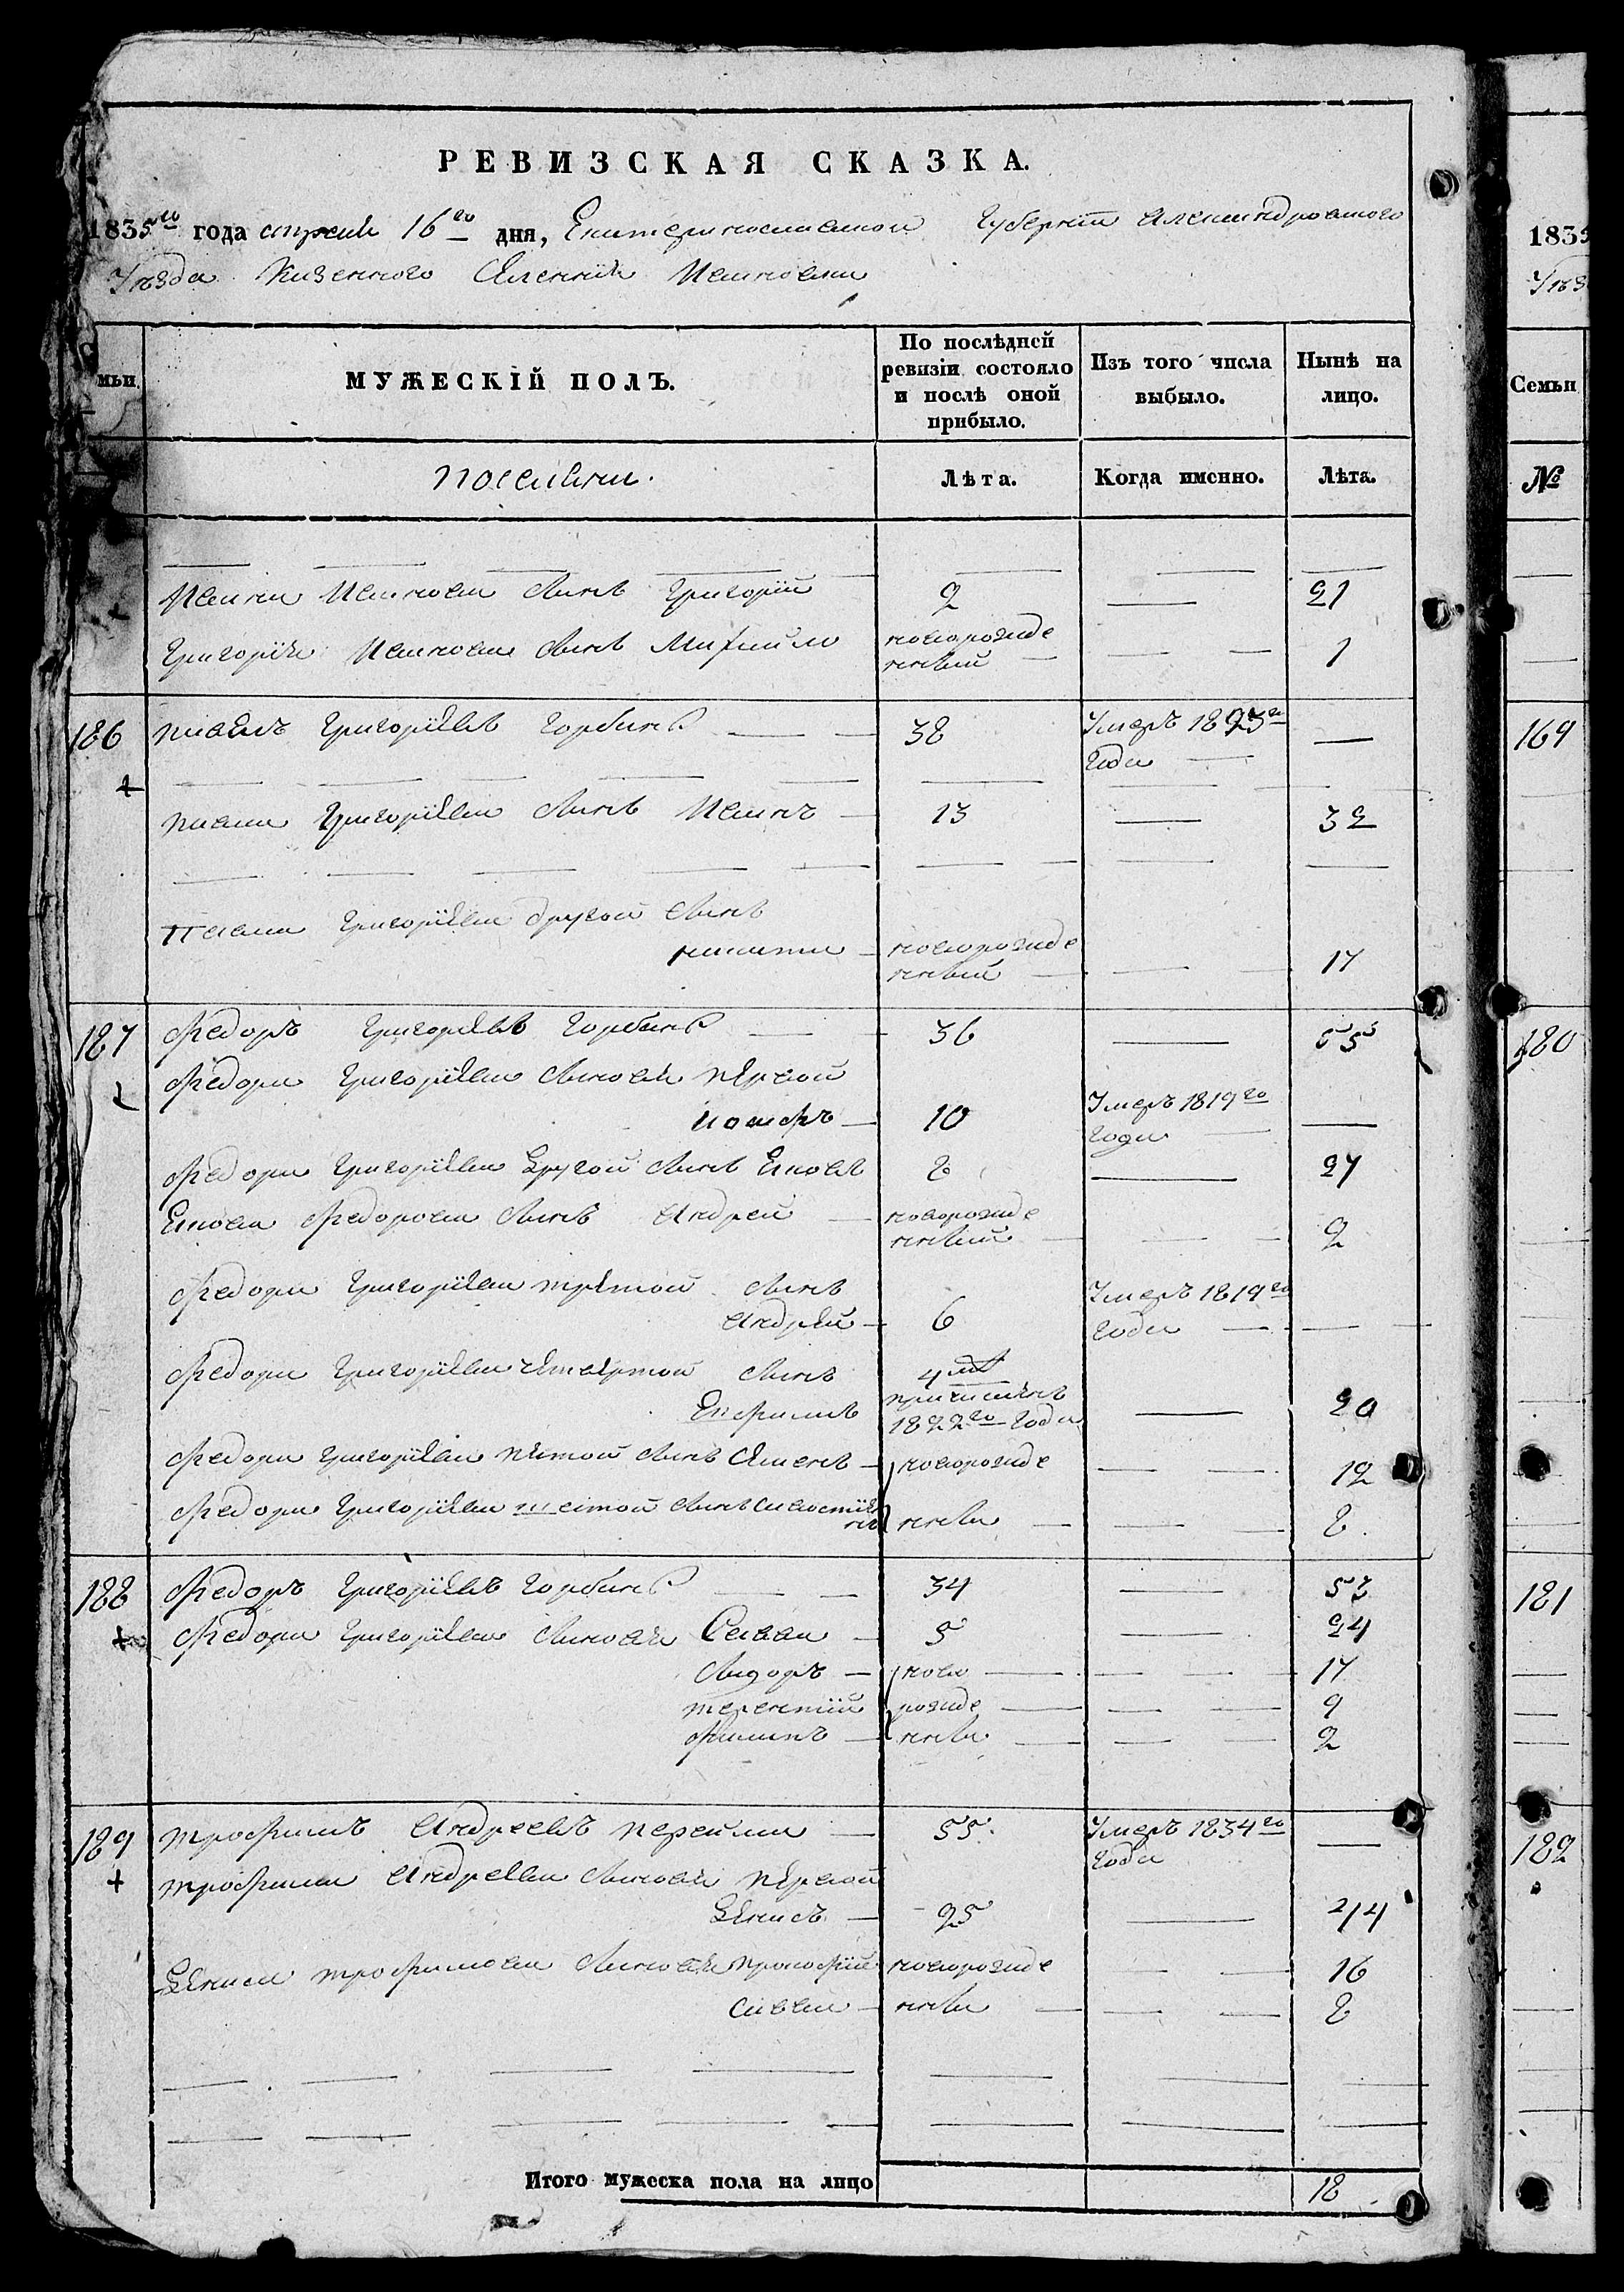 РЕВИЗСКАЯ СКАЗКА.
1835го года апреля 16го дня, Екатеринославской Губернии Александровского
Уезда Казенного Селения Ивановки
мьи
МУЖЕСКІЙ ПОЛЪ.
По послѣдней ревизіи состояло и послѣ оной прибыло.
Изъ того числа выбыло.
Нынѣ на лицо.
Лѣта.
Когда именно.
Лѣта.
Ивана Иванова сынъ Григорій 2 21
Григорія Иванова сынъ Михайло новорожде нный 1
186 Павелъ Григорьевъ Горбань 38 Умеръ 1823го года
Павла Григорьева сынъ Иванъ 13 32
Павла Григорьева другой сынъ
Никита новорожде нный 17
187 Федоръ Григорьевъ Горбань 36 55
Федора Григорьева сыновья первой
Іосифъ 10 Умеръ 1819го года
Федора Григорьева другой сынъ Яковъ 8 27
Якова Федорова сынъ Андрей новорожде нный 2
Федора Григорьева третой сынъ
Андрей 6 Умеръ 1819го года
Федора Григорьева четвертой сынъ
Ефимъ 4 причисленъ 1822го года 20
Федора Григорьева пятой сынъ Семенъ новорожде 12
Федора Григорьева шестой сынъ Савостіянъ нны 8
188 Федоръ Григорьевъ Горбань 34 53
Федора Григорьева сыновья Савва 5 24
Сидоръ ново 17
Терентій рожде 9
Филипъ нны 2
189 Трофимъ Андреевъ 55 Умеръ 1834го года
Трофима Андреева сыновья первой
Денисъ 25 44
Дениса Трофимова сыновья Прокофій новорожде 16
Савва нны 8
Итого мужеска пола на лицо 18
1835
Уѣз
Семьи
№
169
180
181
182